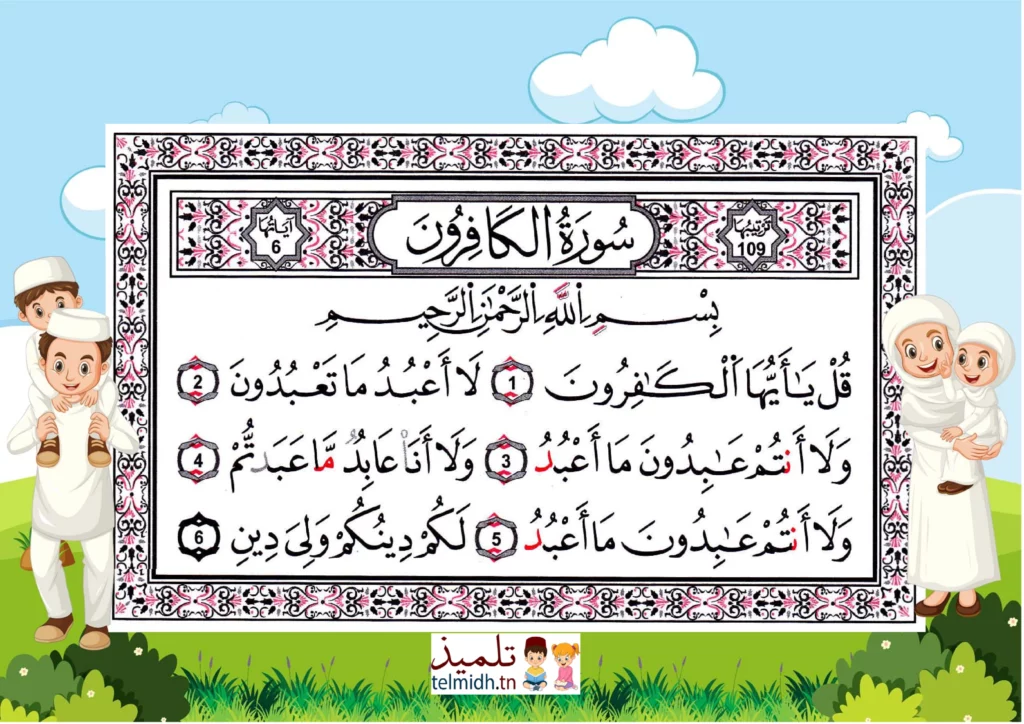 ترتيبها 109 سُورَةُ الْكَافِرُونَ آياتُهَا 6
بِسْمِ اِ۬للَّهِ اِ۬لرَّحْمَٰنِ اِ۬لرَّحِيمِ
قُلْ يَٰأَيُّهَا اَ۬لْكَٰفِرُونَ 1 لَا أَعْبُدُ مَا تَعْبُدُونَ 2
وَلَا أَنتُمْ عَٰبِدُونَ مَا أَعْبُدُ 3 وَلَا أَنَا عَابِدٌ مَّا عَبَدتُّمْ 4
وَلَا أَنتُمْ عَٰبِدُونَ مَا أَعْبُدُ 5 لَكُمْ دِينُكُمْ وَلِىَ دِينِ 6
تلميذ
telmidh.tn